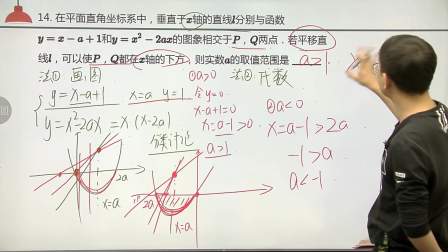 14. 在平面直角坐标系中，垂直于x轴的直线l分别与函数
y=x-a+1和y=x²-2ax的图象相交于P，Q两点．若平移直
线l，可以使P，Q都在x轴的下方，则实数a的取值范围是 a>1
法① 画图
y=x-a+1
x=a y=1
y=x²-2ax=x(x-2a)
①a>0
令y=0
x-a+1=0
x=a-1>0
a>1
法② 代数
②a<0
x=a-1>2a
-1>a
a<-1
2a
x=a
2a
x=a